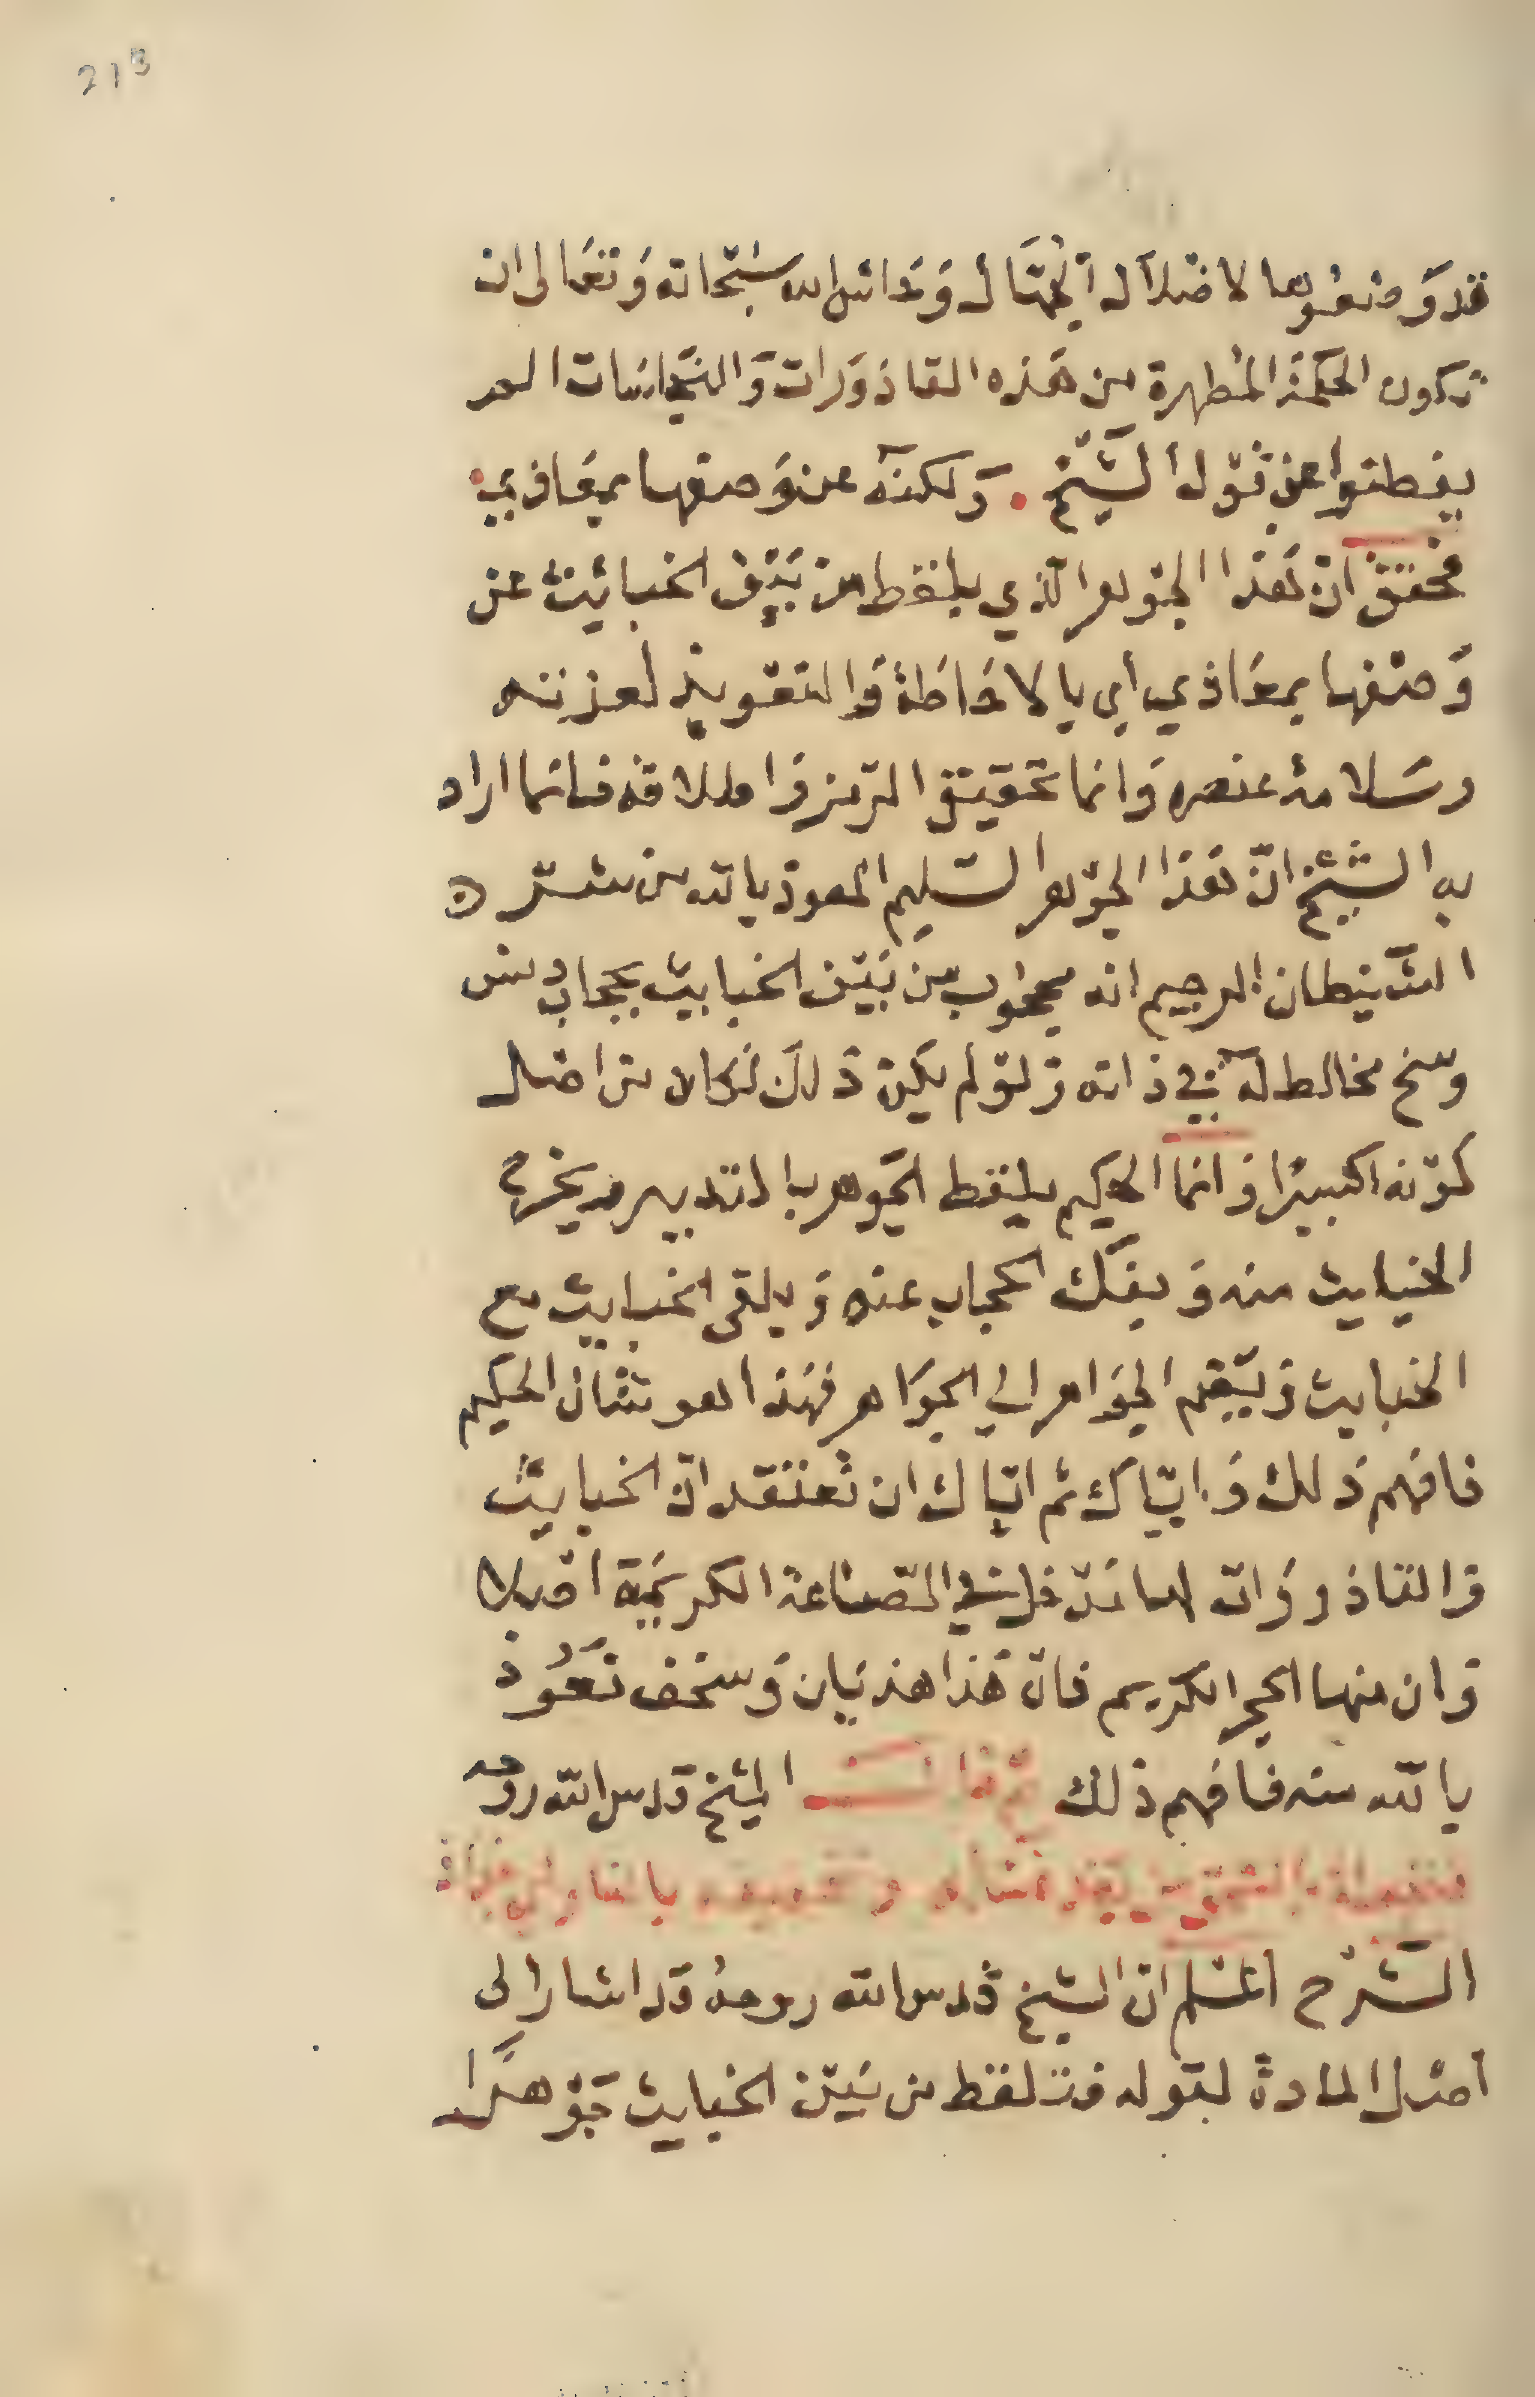 213
قد وضعوها لاضلال الجهال وحاش الله سبحانه وتعالى ان
تكون الحكمة المطهرة من هذه القاذورات والنجاسات الم
يفطنوا عن قول الشيخ . ولكنه عن وصفها بمعاذي
فحقق ان هذا الجوهر الذي يلتقط من بين الخبائث عن
وصفها بمعاذي اي بالاحاطة والتعويذ لعزته
وسلامة عنصره وانما تحقيق الرمز فانما اراد
به الشيخ ان هذا الجوهر السليم المعوذ بالله من شر
الشيطان الرجيم انه محجوب من بين الخبايث بحجاب من
وسخ مخالط له في ذاته ولو لم يكن ذلك لكان من اصل
كونه اكسيرا وانما الحكيم يلتقط الجوهر بالتدبير ويخرج
الخبايث منه ويفك الحجاب عنه ويلقى الخبايث مع
الخبايث ويقم الجواهر الي الجواهر فهذا هو شان الحكيم
فافهم ذلك واياك ثم اياك ان تعتقد ان الخبايث
والقاذورات لها مدخل في الصناعة الكريمة اصلا
وان منها الحجر الكريم فان هذا هذيان وسخف نعوذ
بالله منه فافهم ذلك ثم قال الشيخ قدس الله روحه
الشرح اعلم ان الشيخ قدس الله روحه قد اشار الى
اصل المادة بقوله فتلقط من بين الخبايث جوهرا